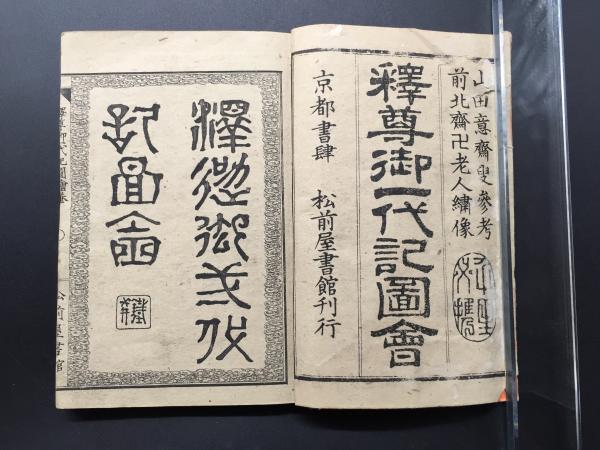 山田意齋叟參考
前北齋卍老人繡像
釋尊御一代記圖會
京都書肆 松前屋書館刊行
釋迦御一代
記圖會
松前屋書館